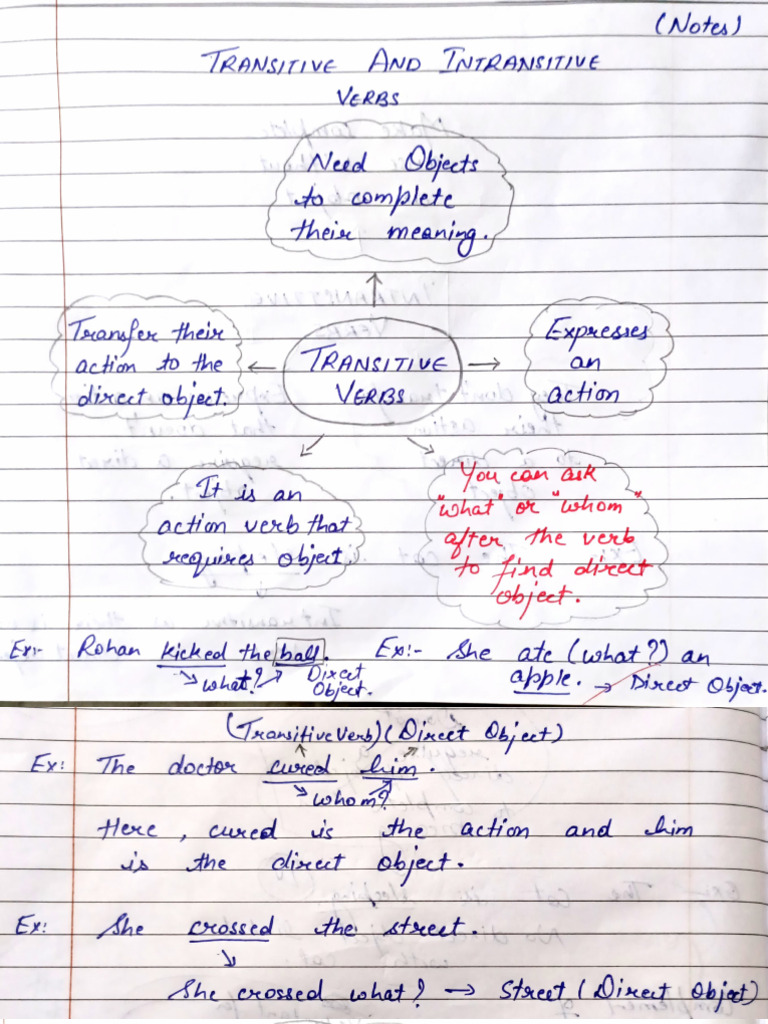 (Notes)
TRANSITIVE AND INTRANSITIVE
VERBS
Need Objects
to complete
their meaning.
Transfer their
action to the
direct object.
TRANSITIVE
VERBS
Expresses
an
action
It is an
action verb that
requires object.
You can ask
"what" or "whom"
after the verb
to find direct
object.
Ex:- Rohan kicked the ball.
what?
Direct
Object.
Ex:- She ate (what?) an
apple. → Direct Object.
(Transitive Verb) (Direct Object)
Ex: The doctor cured him.
whom?
Here, cured is the action and him
is the direct object.
Ex: She crossed the street.
She crossed what? → Street (Direct Object)